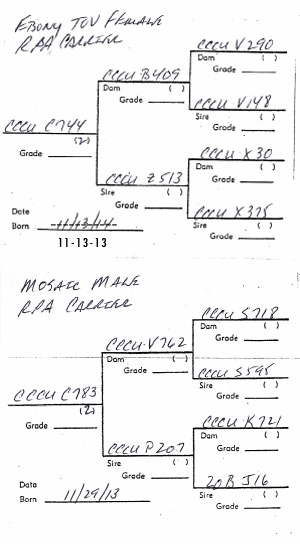 EBONY TOV FEMALE
RPA CARRIER
CCCU V290
Dam ( )
Grade
CCCU B409
Dam ( )
Grade
CCCU V148
Sire ( )
Grade
CCCU C744
(2)
Grade
CCCU X30
Dam ( )
Grade
CCCU Z513
Sire ( )
CCCU X375
Sire ( )
Grade
Date
Born 11/13/14
11-13-13
MOSAIC MALE
RPA CARRIER
CCCU S718
Dam ( )
Grade
CCCU V762
Dam ( )
Grade
CCCU S595
Sire ( )
Grade
CCCU C783
(2)
Grade
CCCU K721
Dam ( )
Grade
CCCU P207
Sire ( )
Grade
20B J16
Sire ( )
Grade
Date
Born 11/29/13